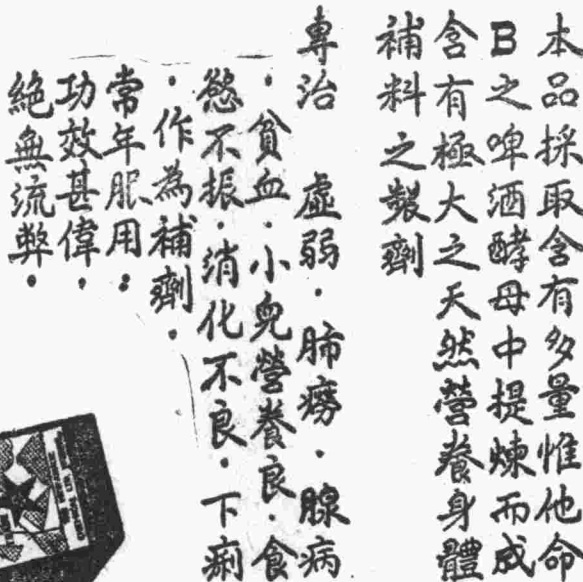 本品採取含有多量惟他命
B之啤酒酵母中提煉而成
含有極大之天然營養身體
補料之製劑
專治 虛弱·肺癆·腺病
·貧血·小兒營養良·食
慾不振·消化不良·下痢
·作為補劑·
常年服用:
功效甚偉,
絕無流弊·